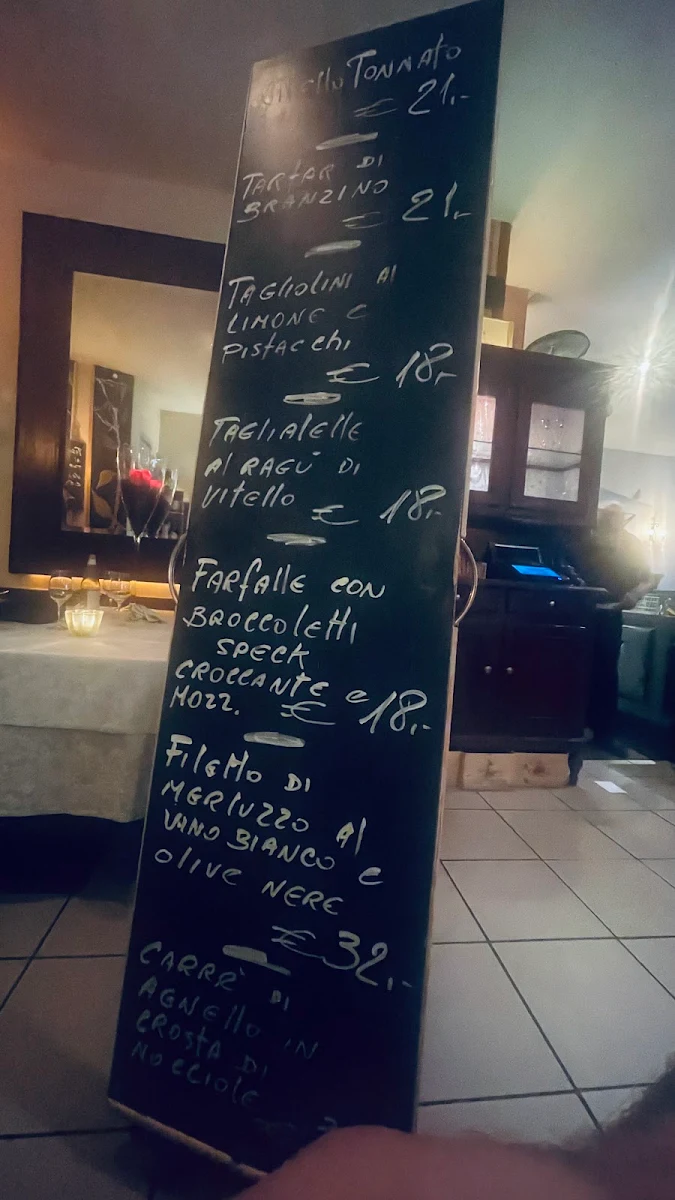 Vitello Tonnato
€ 21,-
Tartar di
Branzino
€ 21,-
Tagliolini al
Limone e
Pistacchi
€ 18,-
Tagliatelle
al Ragù di
Vitello € 18,-
Farfalle con
Broccoletti
Speck
croccante e
Mozz. € 18,-
Filetto di
Merluzzo al
vino Bianco e
olive nere
€ 32,-
Carrè di
Agnello in
crosta di
nocciole